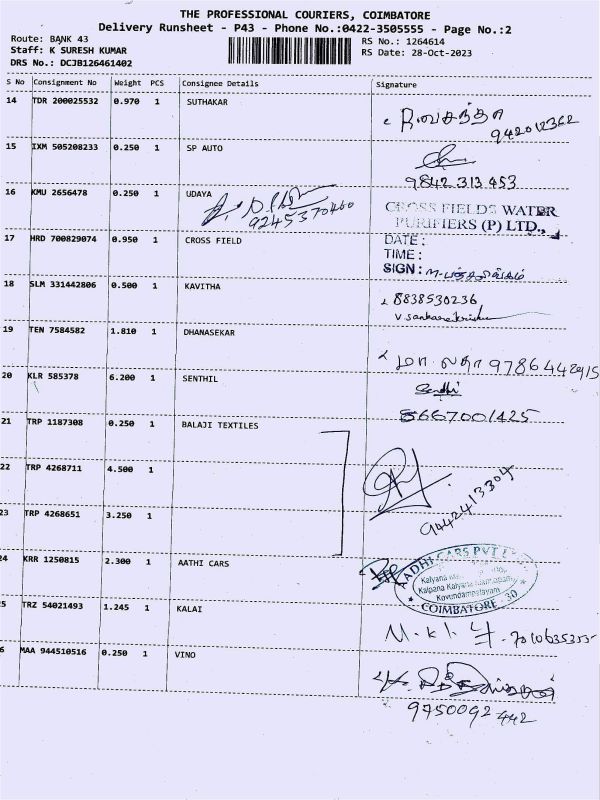 THE PROFESSIONAL COURIERS, COIMBATORE
Delivery Runsheet - P43 - Phone No.:0422-3505555 - Page No.:2
Route: BANK 43
RS No.: 1264614
Staff: K SURESH KUMAR
RS Date: 28-Oct-2023
DRS No.: DCJB126461402
S No Consignment No Weight PCS Consignee Details Signature
14 TDR 200025532 0.970 1 SUTHAKAR
942012362
15 IXM 505208233 0.250 1 SP AUTO
9842 313 453
16 KMU 2656478 0.250 1 UDAYA
9245370460
CROSS FIELDS WATER
PURIFIERS (P) LTD.,
17 HRD 700829074 0.950 1 CROSS FIELD
DATE :
TIME :
SIGN :
18 SLM 331442806 0.500 1 KAVITHA
8838530236
19 TEN 7584582 1.810 1 DHANASEKAR
லதா 9786442915
20 KLR 585378 6.200 1 SENTHIL
8667001425
21 TRP 1187308 0.250 1 BALAJI TEXTILES
22 TRP 4268711 4.500 1
9442413304
23 TRP 4268651 3.250 1
24 KRR 1250815 2.300 1 AATHI CARS
AADHI CARS PVT LTD
Kalyana
Kalpana Kalyana Mandapam
Kovundampalayam
COIMBATORE - 30
25 TRZ 54021493 1.245 1 KALAI
7010635355
26 MAA 944510516 0.250 1 VINO
9750092 442